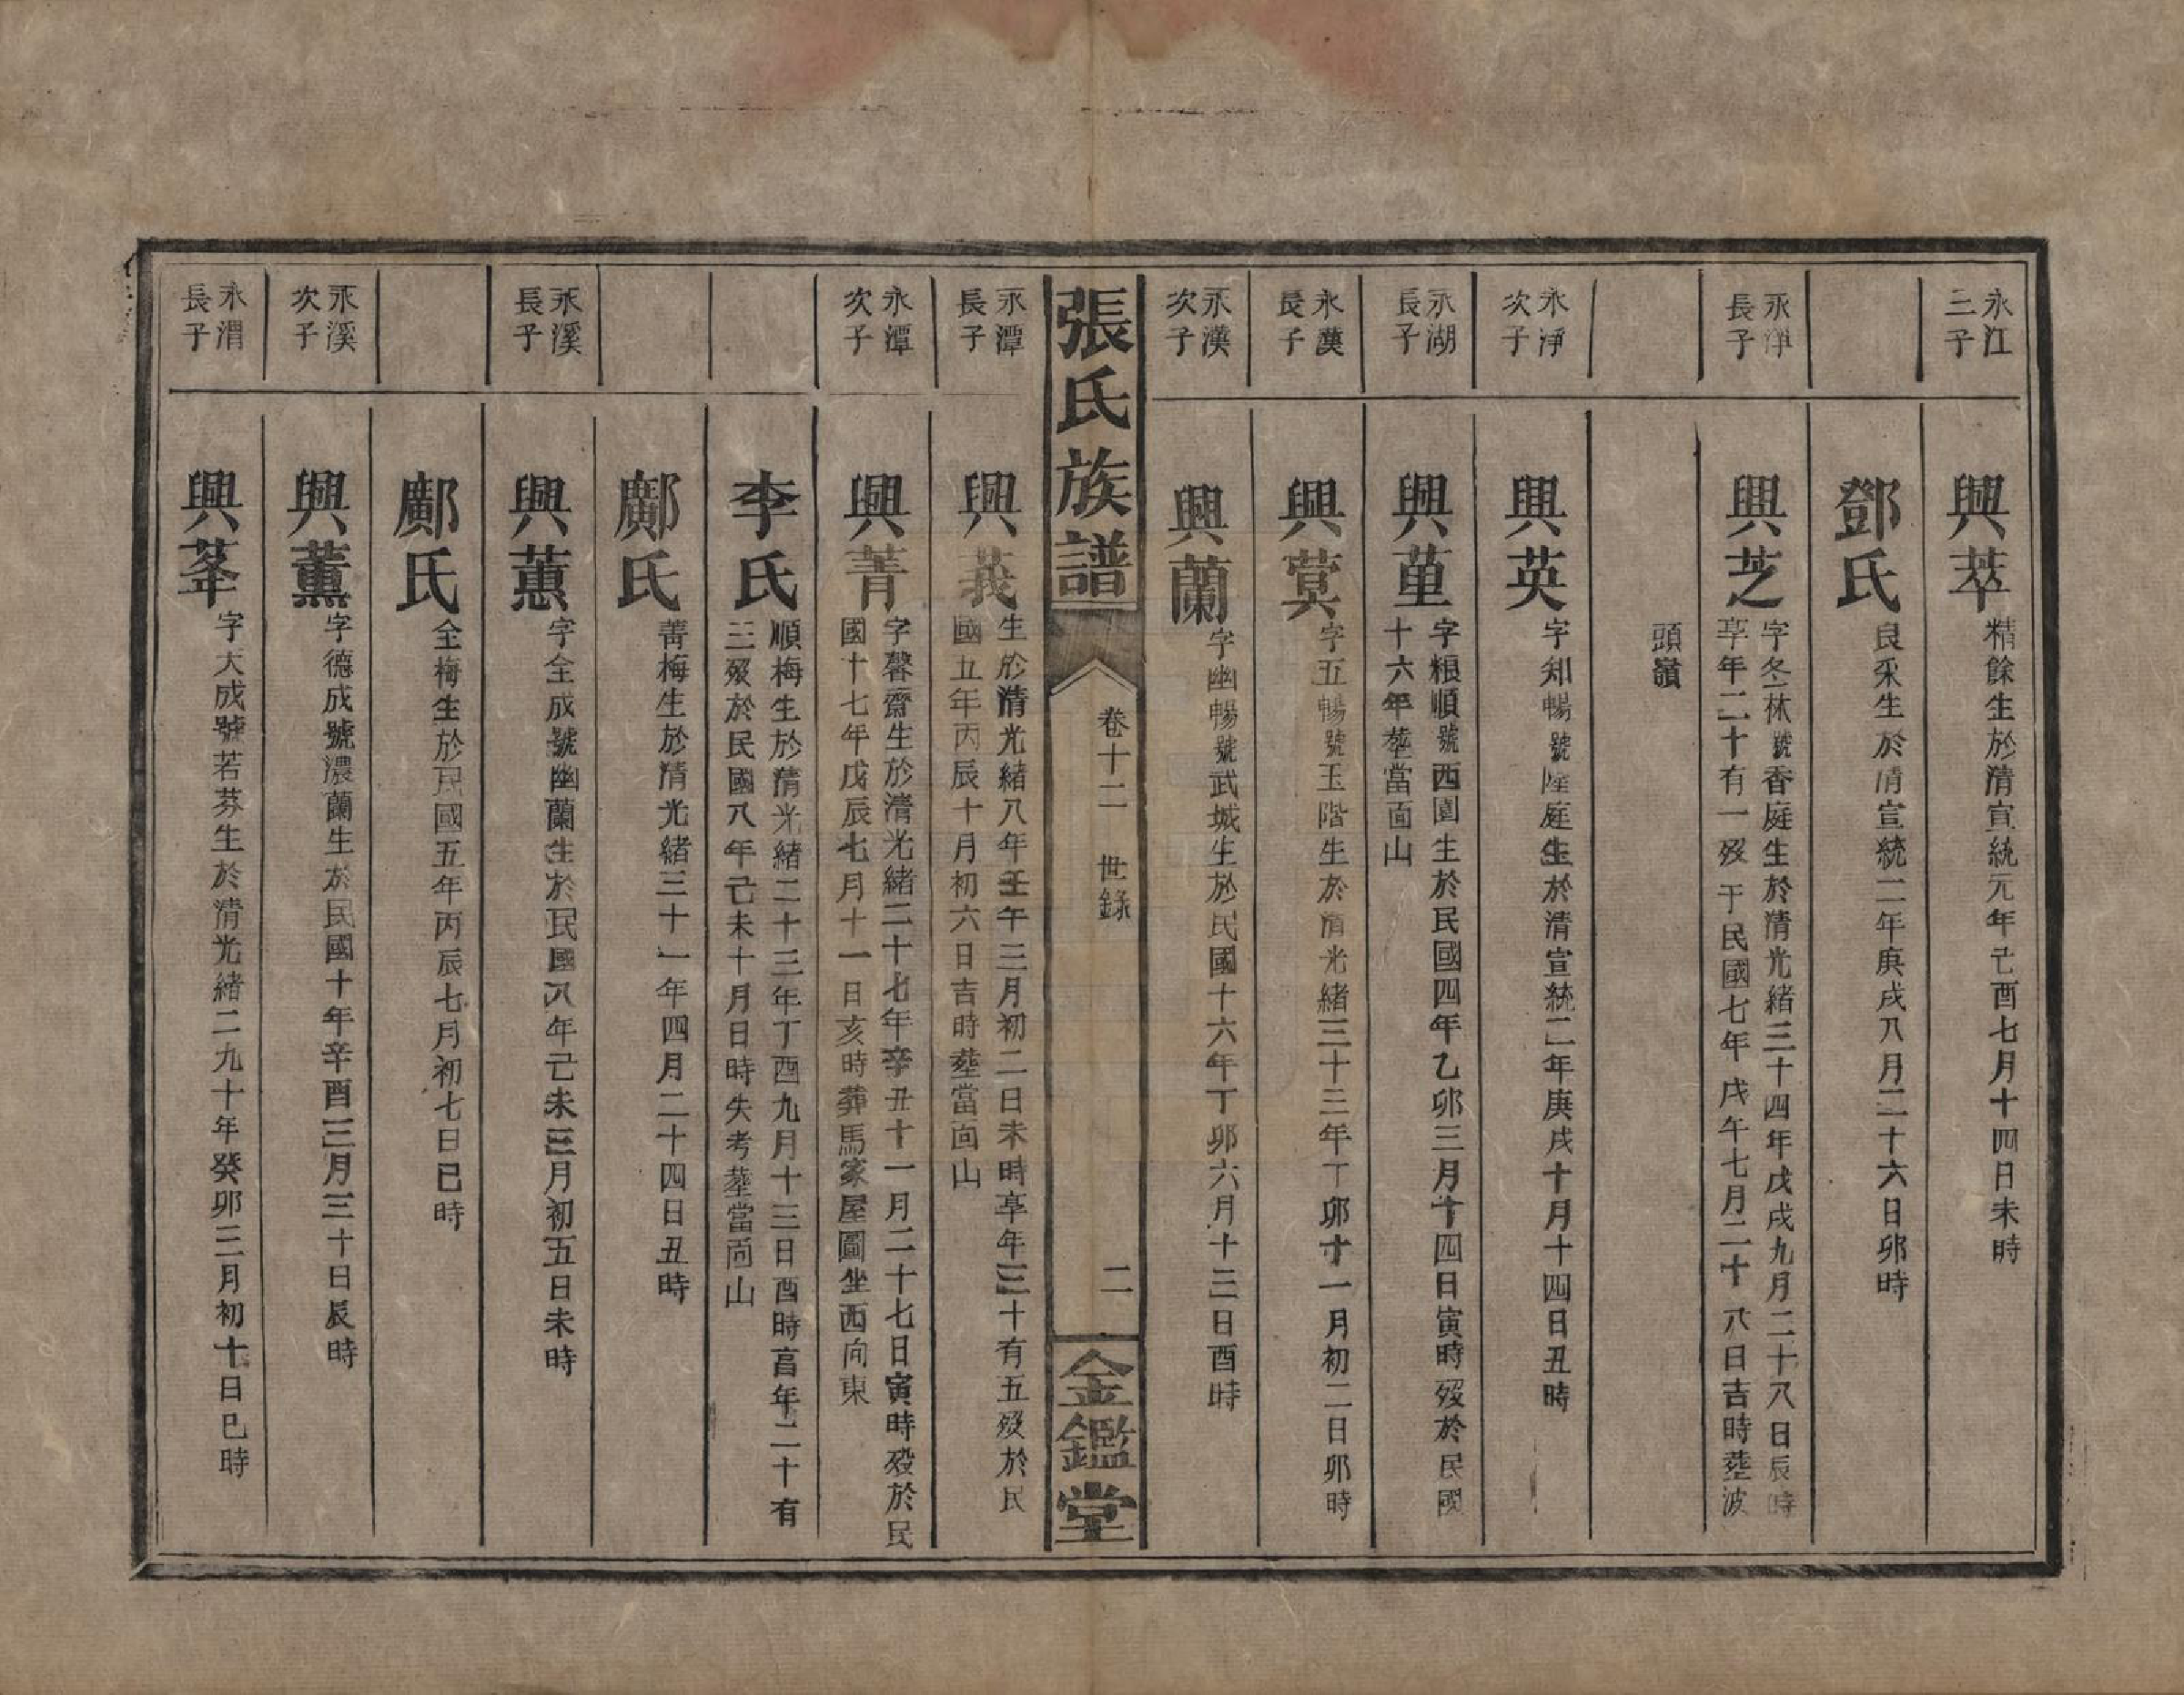 永江
三子
興萃
精餘生於清宣統元年己酉七月十四日未時
鄧氏
良采生於清宣統二年庚戌八月二十六日卯時
永淨
長子
興芝
字冬林號香庭生於清光緒三十四年戊戌九月二十八日辰時
享年二十有一歿于民國七年戊午七月二十八日吉時塟波
頭嶺
永淨
次子
興英
字知暢號陸庭生於清宣統二年庚戌十月十四日丑時
永湖
長子
興菫
字粮順號西園生於民國四年乙卯三月十四日寅時歿於民國
十六年塟當面山
永漢
長子
興蓂
字五暢號玉階生於清光緒三十三年丁卯十一月初二日卯時
永漢
次子
興蘭
字幽暢號武城生於民國十六年丁卯六月十三日酉時
張氏族譜
卷十二 世錄
二
金鑑堂
永潭
長子
興莪
生於清光緒八年壬午三月初二日未時享年三十有五歿於民
國五年丙辰十月初六日吉時塟當面山
永潭
次子
興菁
字馨齋生於清光緒二十七年辛丑十一月二十七日寅時歿於民
國十七年戊辰七月十一日亥時葬馬家屋圖坐西向東
李氏
順梅生於清光緒二十三年丁酉九月十三日酉時享年二十有
三歿於民國八年己未十月日時失考塟當面山
鄺氏
菁梅生於清光緒三十一年四月二十四日丑時
永溪
長子
興蕙
字全成號幽蘭生於民國八年己未三月初五日未時
鄺氏
全梅生於民國五年丙辰七月初七日巳時
永溪
次子
興薰
字德成號濃蘭生於民國十年辛酉三月三十日辰時
永渭
長子
興莑
字大成號若芬生於清光緒二九十年癸卯三月初十日巳時